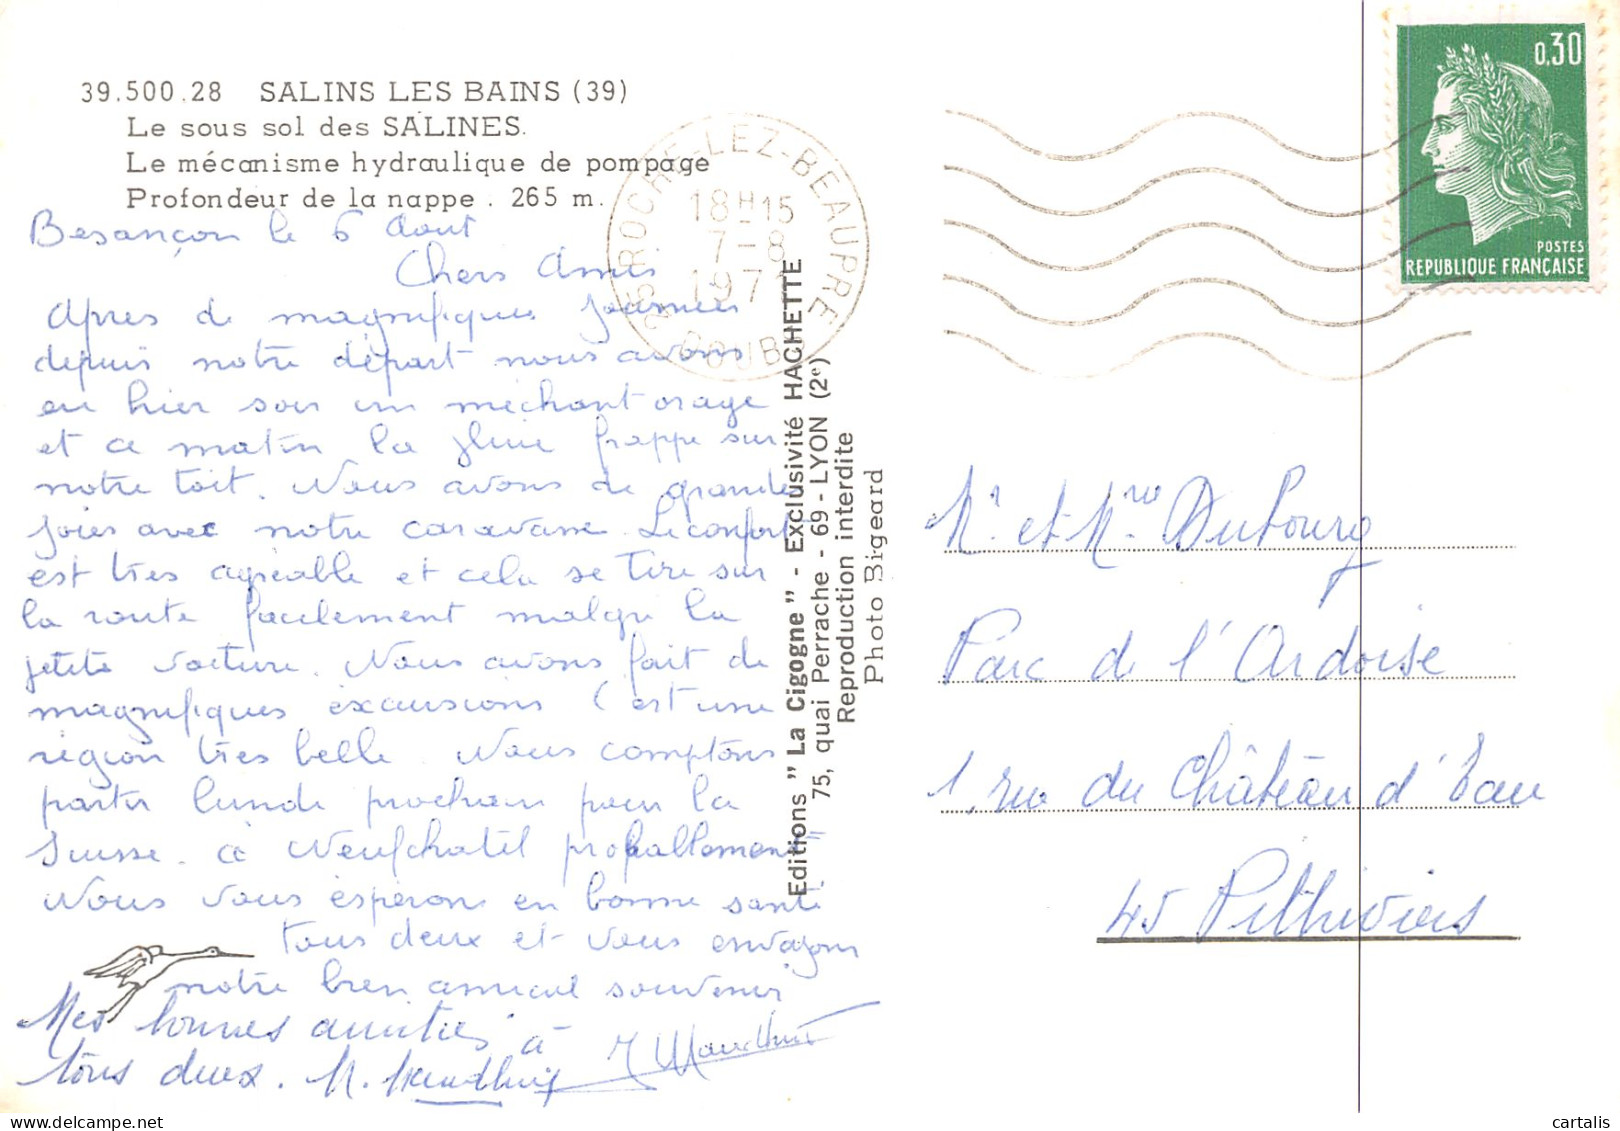 39.500.28 SALINS LES BAINS (39)
Le sous sol des SALINES.
Le mécanisme hydraulique de pompage
Profondeur de la nappe . 265 m.
Besançon le 6 Aout
Chers Amis
Après de magnifiques journées
depuis notre départ nous avons
eu hier soir un méchant orage
et ce matin la pluie frappe sur
notre toit. Nous avons de grandes
joies avec notre caravane. Le confort
est très agréable et cela se tire sur
la route facilement malgré la
petite voiture. Nous avons fait de
magnifiques excursions (est une
région très belle. Nous comptons
partir lundi prochain pour la
Suisse. à Neufchatel probablement
Nous vous espérons en bonne santé
tous deux et vous envoyons
notre bien amical souvenir
Mes bonnes amitiés à
tous deux. M.
ROCHE-LEZ-BEAUPRE
18H15
7-8
197
DOUBS
Editions "La Cigogne" - Exclusivité HACHETTE
75, quai Perrache - 69 - LYON (2e)
Reproduction interdite
Photo Bigeard
0,30
POSTES
REPUBLIQUE FRANÇAISE
Mr et Mme Dubourg
Parc de l'Ardoise
1, rue du Château d'Eau
45 Pithiviers
cartalis